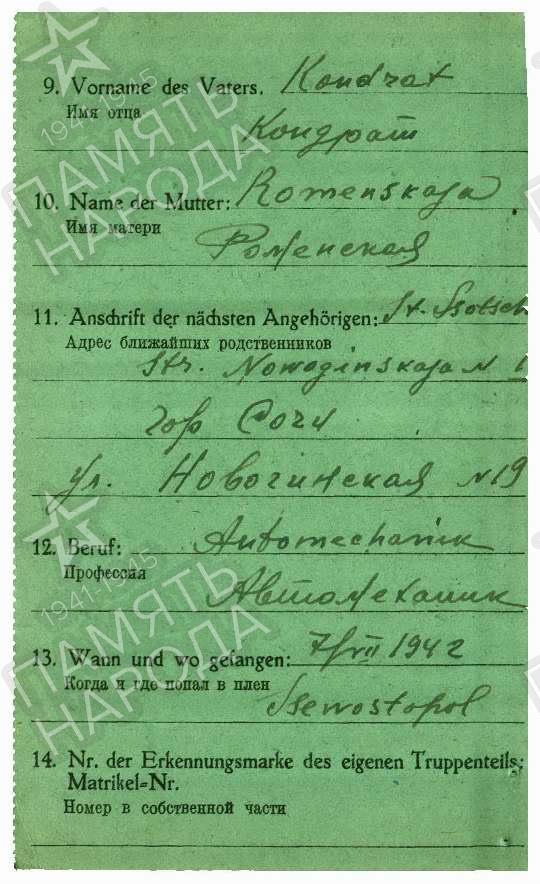 9. Vorname des Vaters. Kondrat
Имя отца
Кондрат
10. Name der Mutter: Romenskaja
Имя матери
Роменская
11. Anschrift der nächsten Angehörigen: St. Ssotsch
Адрес ближайших родственников
Str. Nowoginskaja N 1
гор Сочи
ул. Новогинская N 19
12. Beruf: Automechanik
Профессия
Автомеханик
13. Wann und wo gefangen: 7/VII 1942
Когда и где попал в плен
Ssewostopol
14. Nr. der Erkennungsmarke des eigenen Truppenteils:
Matrikel=Nr.
Номер в собственной части
1941-1945
ПАМЯТЬ
НАРОДА
1941-1945
ПАМЯТЬ
НАРОДА